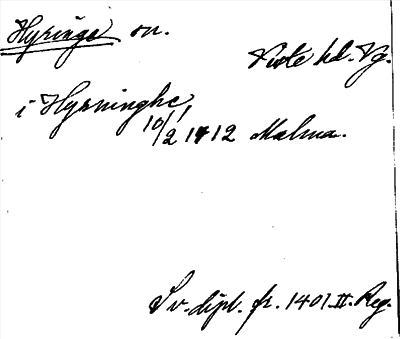 Hyringe sn.
Viste hd. Vg.
i Hyrninghe,
10/2 1412 Malma.
Sv. dipl. fr. 1401. II. Reg.